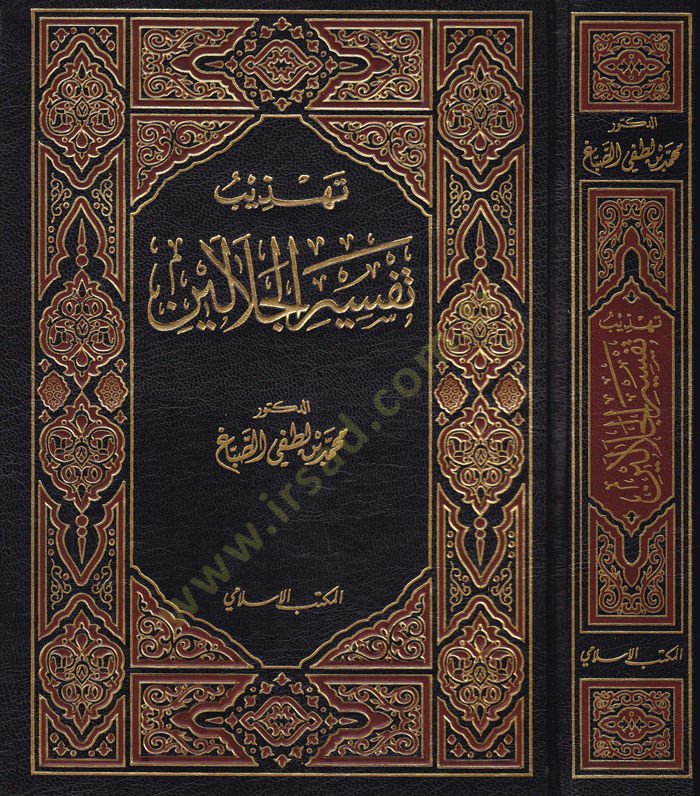 تهذيب
تفسير الجلالين
الدكتور
محمد بن لطفي الصباغ
المكتب الإسلامي
www.irsad.com
الدكتور
محمد بن لطفي الصباغ
تهذيب
تفسير الجلالين
المكتب الإسلامي